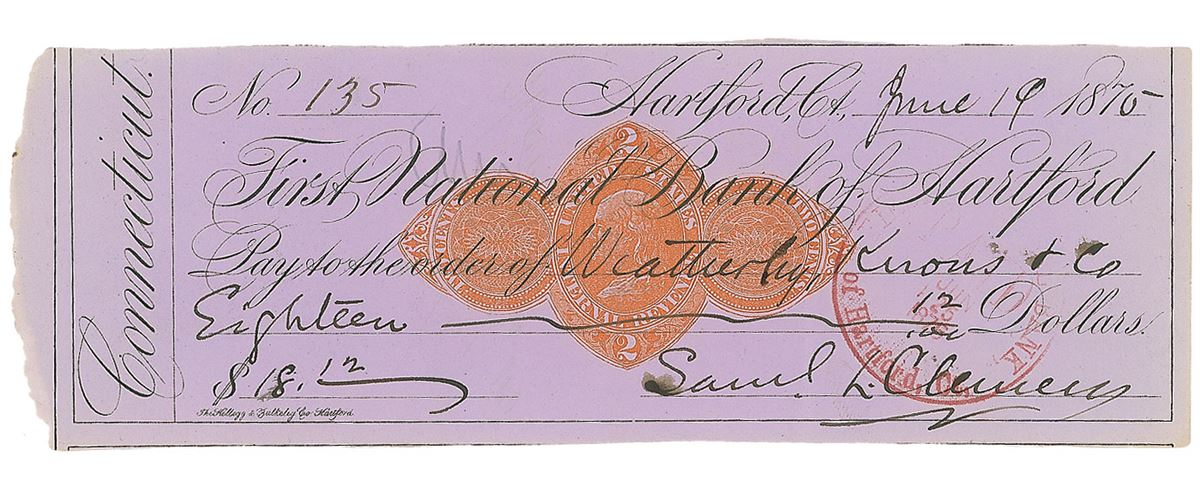 Connecticut.
No. 135 Hartford, Ct., June 19 1875
First National Bank of Hartford
Pay to the order of Weatherby, Knous & Co
Eighteen 12/100 Dollars.
$ 18.12 Saml L. Clemens
The Kellogg & Bulkeley Co. Hartford.
2
UNITED STATES
INTERNAL REVENUE
2
of Hartford,